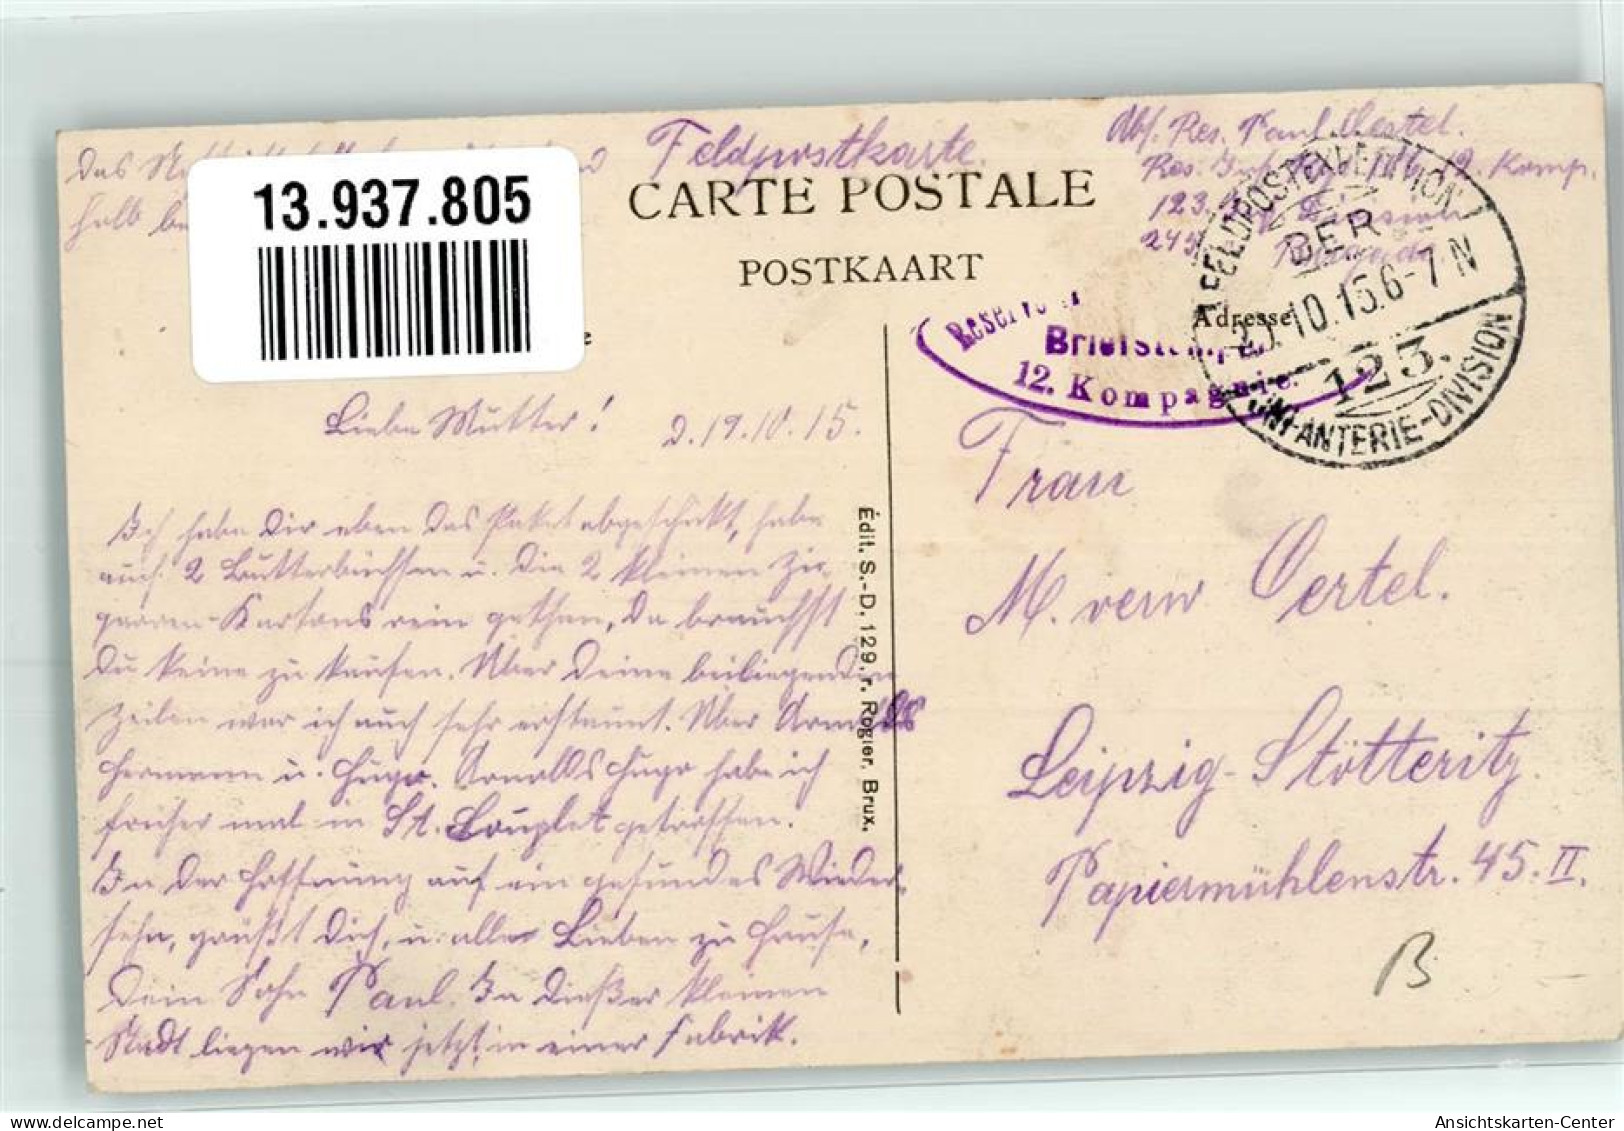 Das
halb
13.937.805
Feldpostkarte.
CARTE POSTALE
POSTKAART
Abs. Res. Paul Oertel.
Res. 12. Komp.
123. Division
245. Brigade
FELDPOSTEXPEDITION
DER
20.10.15.6-7 N
123.
INFANTERIE-DIVISION
Adresse
Reserve
Briefstempel
12. Kompagnie.
Liebe Mutter! d. 19.10.15.
Ich habe Dir eben das Paket abgeschickt, habe
auch 2 Butterbüchsen u. die 2 kleinen Zi-
garren-Kartons rein gethan, da brauchst
Du keine zu kaufen. Über Deine beiliegenden
Zeilen war ich auch sehr erstaunt. Über Arnolds
Hermann u. Hugo. Arnolds Hugo habe ich
früher mal in St. Souplet getroffen.
In der Hoffnung auf ein gesundes Wieder-
sehn, grüßt Dich, u. alle Lieben zu Hause,
Dein Sohn Paul. In dießer kleinen
Stadt liegen wir jetzt in einer Fabrik.
Édit. S.-D. 129. r. Rogier. Brux.
Frau
M. verw Oertel.
Leipzig-Stötteritz.
Papiermühlenstr. 45. II.
B
delcampe.net
Ansichtskarten-Center